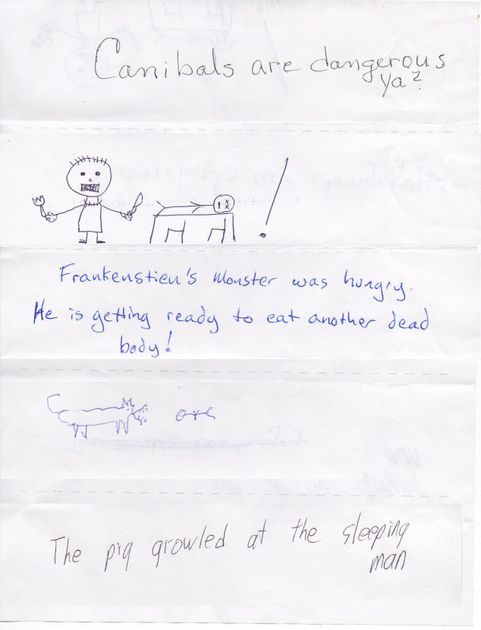 Canibals are dangerous
ya?
Frankenstien's Monster was hungry.
He is getting ready to eat another dead
body!
The pig growled at the sleeping
man